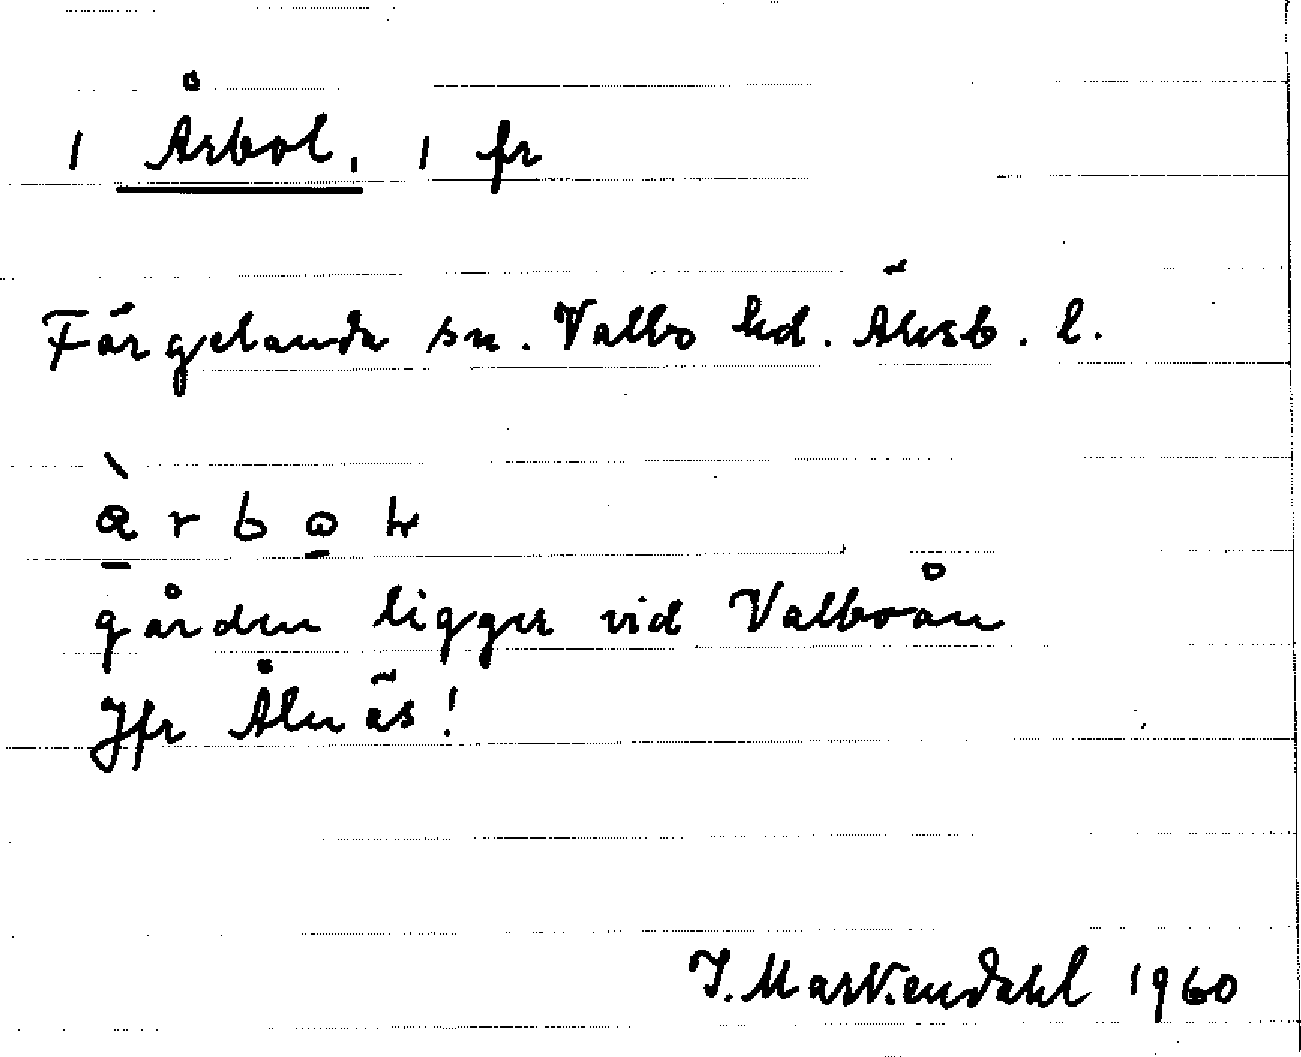 1 Årbol, 1 fr
Färgelanda sn. Valbo hd. Älvsb. l.
gården ligger vid Valboån
Jfr Ålnäs!
J. Markendahl 1960